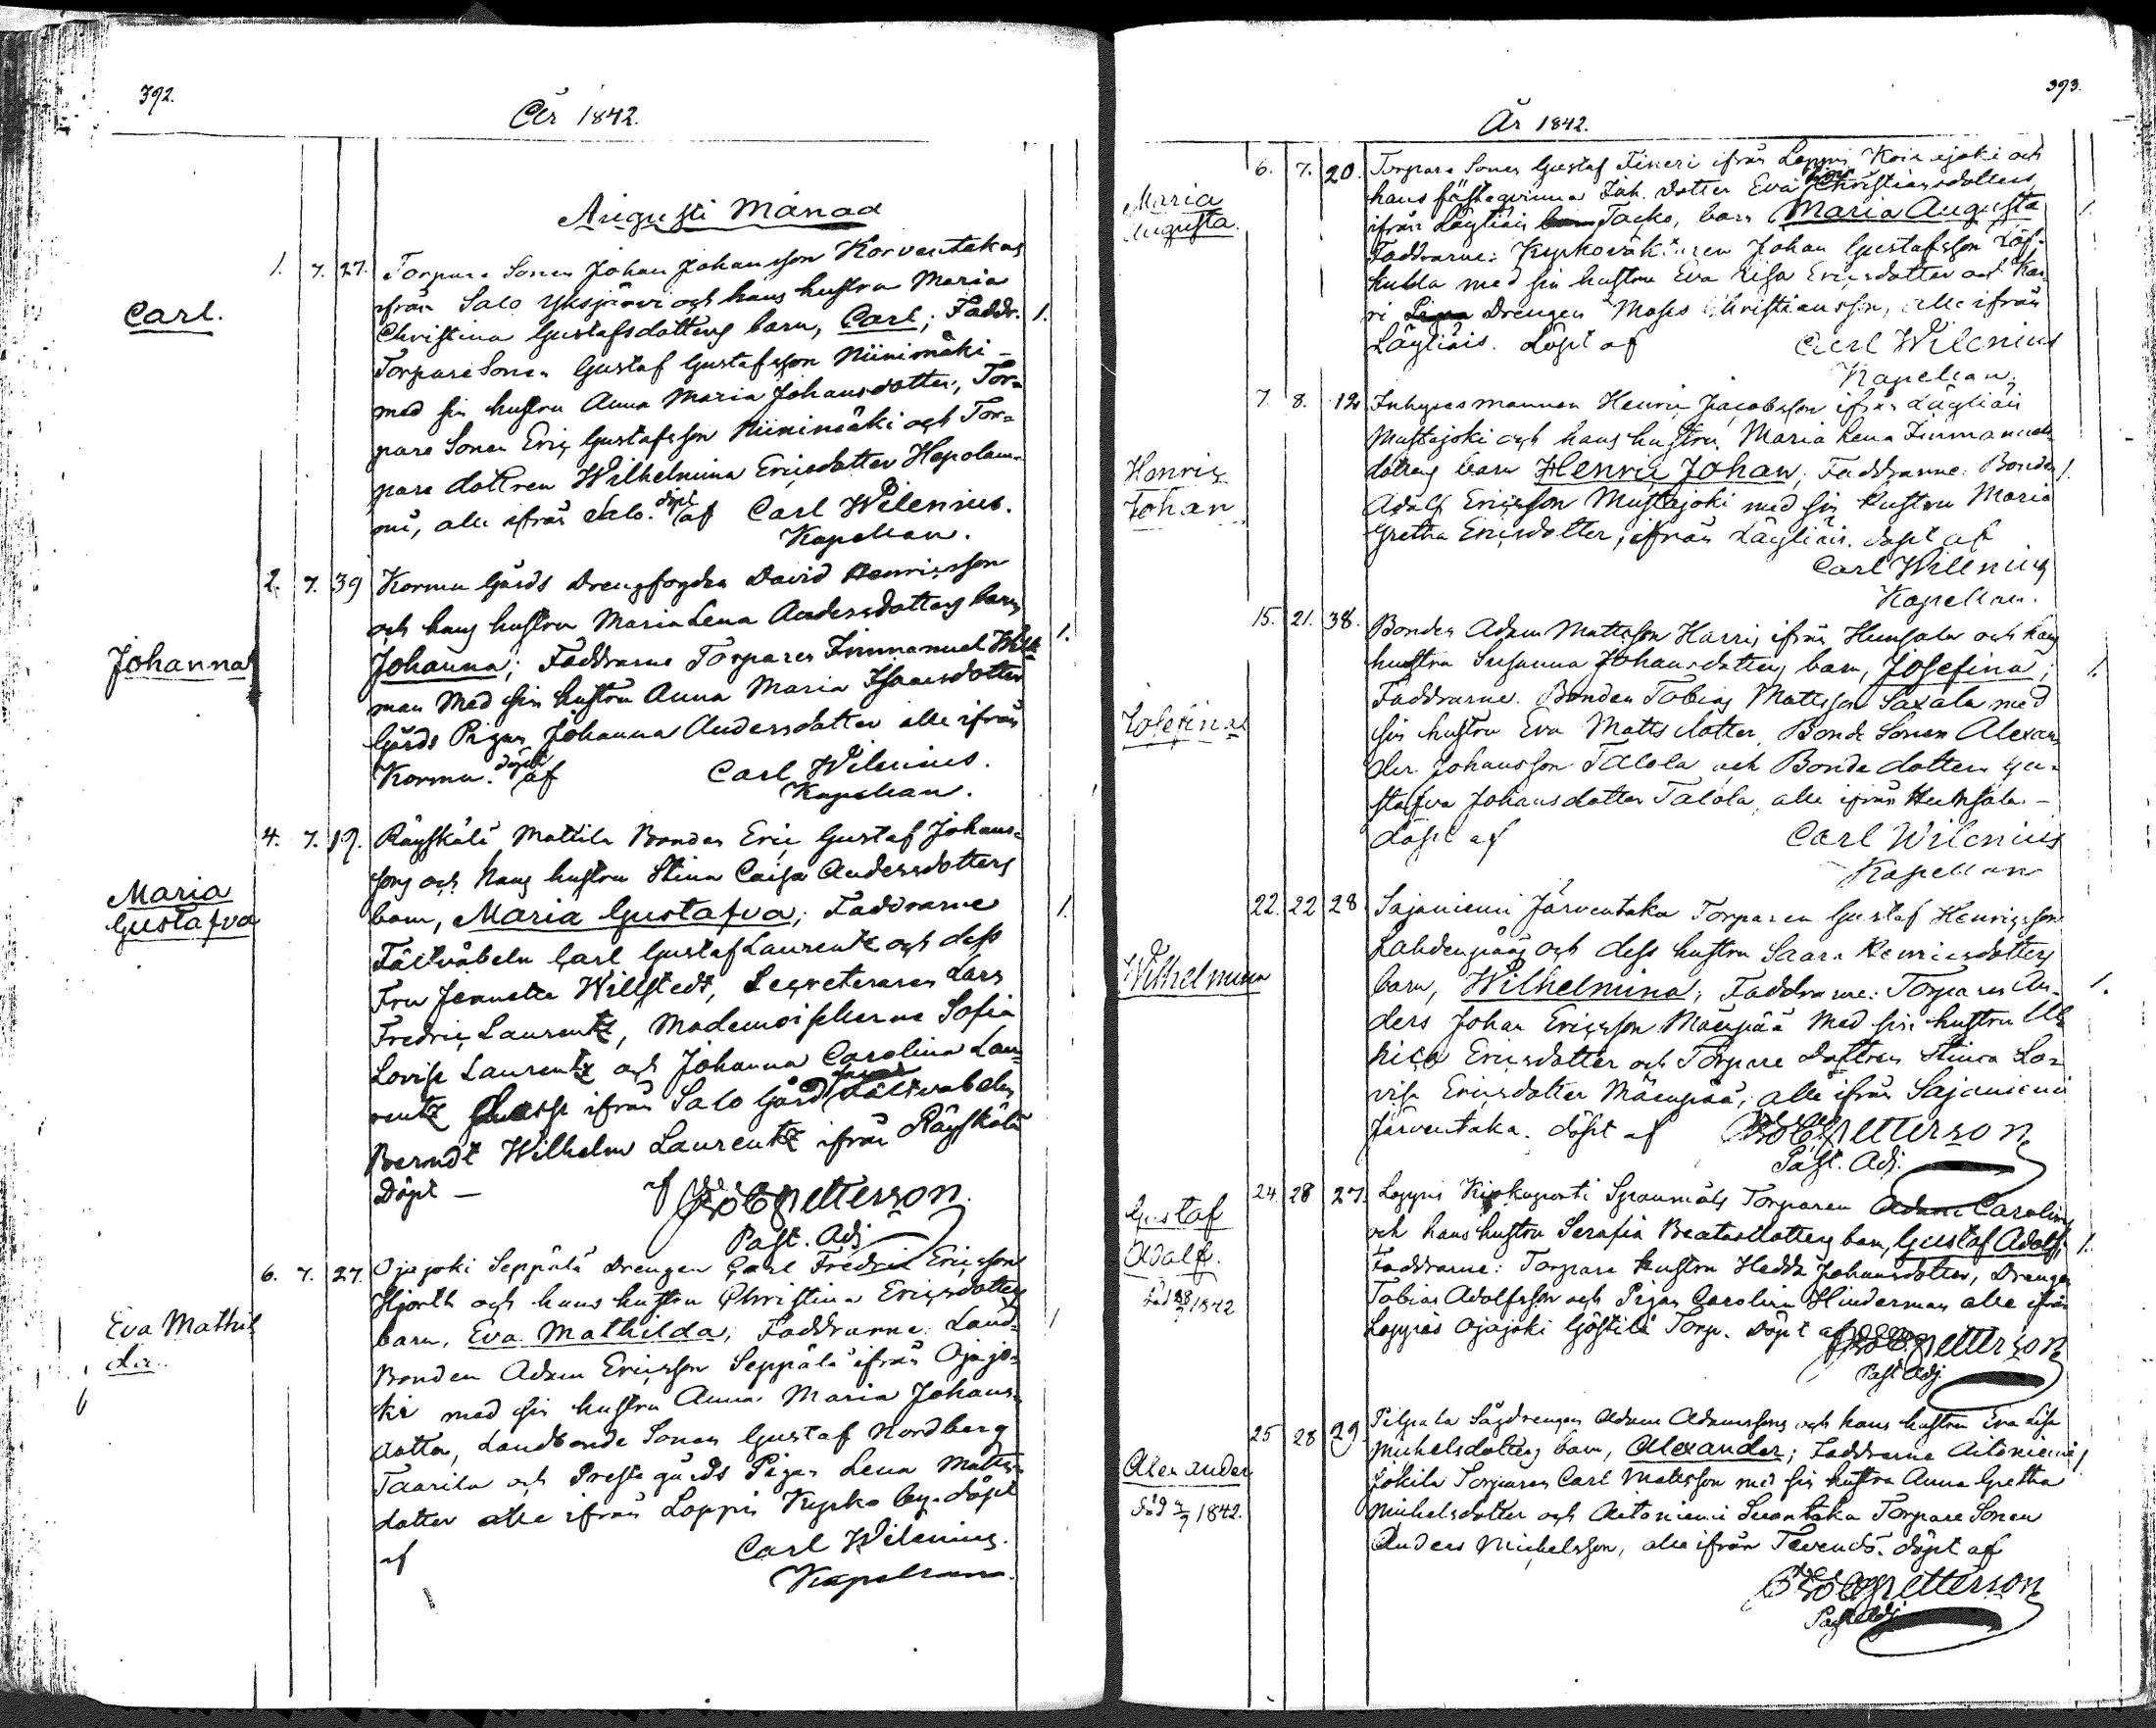 392.
År 1842.
Augusti Månad
Carl.
1. 7. 27. Torpare Sonen Johan Johansson Korventakas
ifrån Salo Yksjärvi och hans hustru Maria
Christina Gustafsdotters barn, Carl; Faddr. 1.
Torpare Sonen Gustaf Gustafsson Niinimäki
med sin hustru Anna Maria Johansdotter, Tor-
pare Sonen Eric Gustafsson Niinimäki och Tor-
pare dottren Wilhelmina Ericsdotter Hepolam-
mi, alla ifrån Salo. döpt af Carl Wilenius.
Kapellan.
Johanna
2. 7. 39 Kormu Gårds Drengfogden David Henricsson
och hans hustru Maria Lena Andersdotters barn,
Johanna; Faddrarne Torparen Immanuel Wilk- 1.
man Med sin hustru Anna Maria Isaacsdotter
Gårds Pigan Johanna Andersdotter alle ifrån
Kormu. döpt af Carl Wilenius.
Kapellan.
Maria
Gustafva
4. 7. 19. Räyskälä Mattila Bonden Eric Gustaf Johans-
sons och hans hustru Stina Caisa Andersdotters
barn, Maria Gustafva; Faddrarne 1.
Fältväbeln Carl Gustaf Laurentz och dess
Fru Jennette Willstedt, Secreteraren Lars
Fredric Laurentz, Mademoisellerne Sofia
Lovisa Laurentz och Johanna Carolina Lau-
rentz ifrån Salo Gård Fältväbeln
Berndt Wilhelm Laurentz ifrån Räyskälä
Döpt — af Petterson.
Past. Adj
Eva Mathil
da.
6. 7. 27. Ojajoki Seppälä Drengen Carl Fredric Ericsson
Hjorth och hans hustru Christina Ericsdotters
barn, Eva Mathilda; Faddrarne: Land- 1
Bonden Adam Ericsson Seppälä ifrån Ojajo-
ki med sin hustru Anna Maria Johans-
dotter, Landbonde Sonen Gustaf Nordberg
Taarila och Prestegårds Pigan Lena Matts-
dotter alle ifrån Loppis Kyrko by. döpt
af Carl Wilenius.
Kapellan.
393.
År 1842.
Maria
Augusta.
6. 7. 20. Torpare Sonen Gustaf Fineri ifrån Loppis Koirajoki och
hans fästeqvinna Inh. dotter Eva Christiansdotters
ifrån Läyliäis Tacko, barn Maria Augusta 1.
Faddrarne: Kyrkoväktaren Johan Gustafsson Löf-
kulla med sin hustru Eva Lisa Ericsdotter och Ka-
ri Drengen Moses Christiansson, alle ifrån
Läyliäis. döpt af Carl Wilenius
Kapellan.
Henric
Johan
7. 8. 12 Inhyses mannen Henric Jacobsson ifrån Läyliäis
Mustajoki och hans hustru Maria Lena Immanuels
dotters barn Henric Johan; Faddrarne: Bonden 1.
Adolf Ericsson Mustajoki med sin hustru Maria
Gretha Ericsdotter, ifrån Läyliäis. döpt af
Carl Wilenius
Kapellan.
Josefina
15. 21. 38. Bonden Adam Mattsson Harris ifrån Hunsala och hans
hustru Susanna Johansdotters barn, Josefina; 1.
Faddrarne. Bonden Tobias Mattsson Saxala med
sin hustru Eva Mattsdotter, Bonde Sonen Alexan-
der Johansson Talola och Bonde dottern Gu-
stafva Johansdotter Talola, alle ifrån Hunsala. —
döpt af Carl Wilenius
Kapellan
Wilhelmina
22. 22 28 Sajaniemi Järventaka Torparen Gustaf Henricsson
Lahdenpääs och dess hustru Saara Henricsdotters
barn, Wilhelmina; Faddrarne: Torparen An- 1.
ders Johan Ericsson Mäenpää Med sin hustru Ul-
rica Ericsdotter och Torpare dottren Stina Lo-
visa Ericsdotter Mäenpää, alle ifrån Sajaniemi
Järventaka. döpt af Petterson
Past. Adj.
Gustaf
Adolf.
död 28/9 1842
24. 28 27. Loppis Torparen Adam Carolins
och hans hustru Serafia Beatasdotters barn, Gustaf Adolf; 1.
Faddrarne: Torpare hustru Hedda Johansdotter, Drengen
Tobias Adolfsson och Pigan Carolina Hinderman alle ifrån
Loppis Ojajoki Torp. döpt af Petterson
Past Adj.
Alexander
död 1842.
25 28 29. Pilpala Sågdrengen Adam Adamssons och hans hustru Eva Lisa
Michelsdotters barn, Alexander; Faddrarne Aitoniemi 1
Jokila Torparen Carl Mattsson med sin hustru Anna Gretha
Michelsdotter och Aitoniemi Suontaka Torpare Sonen
Anders Michelsson, alle ifrån Tevendö. döpt af
Petterson
Past Adj.